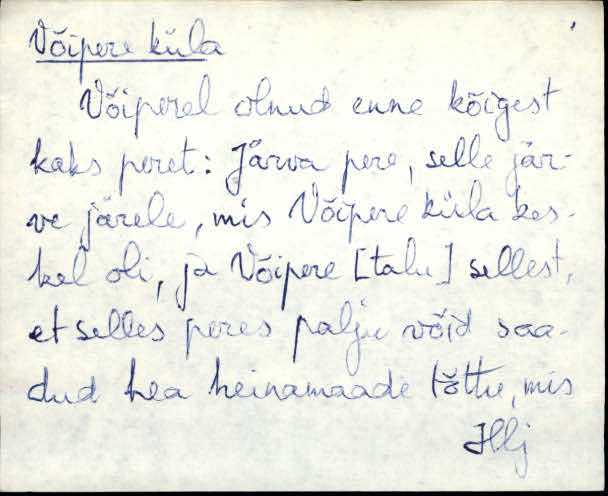 Võipere küla
Võiperel olnud enne kõigest
kaks peret: Järva pere, selle jär-
ve järele, mis Võipere küla kes-
kel oli, ja Võipere [talu] sellest,
et selles peres palju võid saa-
dud hea heinamaade tõttu, mis